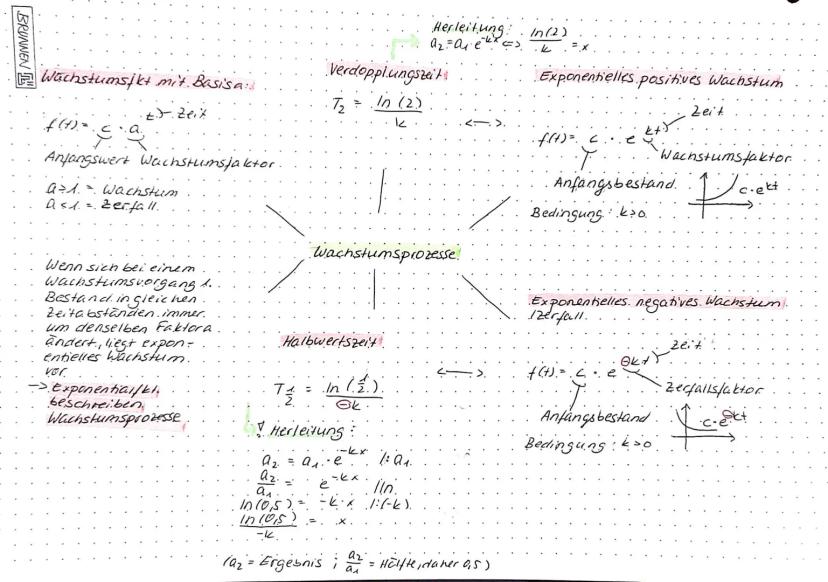 BRUNNEN
Herleitung:
a₂ = a₁ · e^-kx <=> ln(2)/k = x
Wachstumsfkt mit Basis a:
f(t) = c · a^t } Zeit
Anfangswert Wachstumsfaktor
a>1 = Wachstum
a<1 = Zerfall
Verdopplungszeit
T₂ = ln(2)/k
<-->
Exponentielles positives Wachstum
f(t) = c · e^kt } Zeit
Wachstumsfaktor
Anfangsbestand
c·e^kt
Bedingung: k>0
Wachstumsprozesse
Wenn sich bei einem
Wachstumsvorgang 1.
Bestand in gleichen
Zeitabständen immer
um denselben Faktor a
ändert, liegt expon-
entielles Wachstum
vor
-> Exponentialfkt.
beschreiben
Wachstumsprozesse
Halbwertszeit
T½ = ln(½)/-k
<-->
! Herleitung:
a₂ = a₁ · e^-kx /:a₁
a₂/a₁ = e^-kx /ln
ln(0,5) = -k·x /:(-k)
ln(0,5)/-k = x
(a₂ = Ergebnis ; a₂/a₁ = Hälfte, daher 0,5)
Exponentielles negatives Wachstum
/Zerfall
f(t) = c · e^-kt } Zeit
Zerfallsfaktor
Anfangsbestand
c·e^-kt
Bedingung: k>0